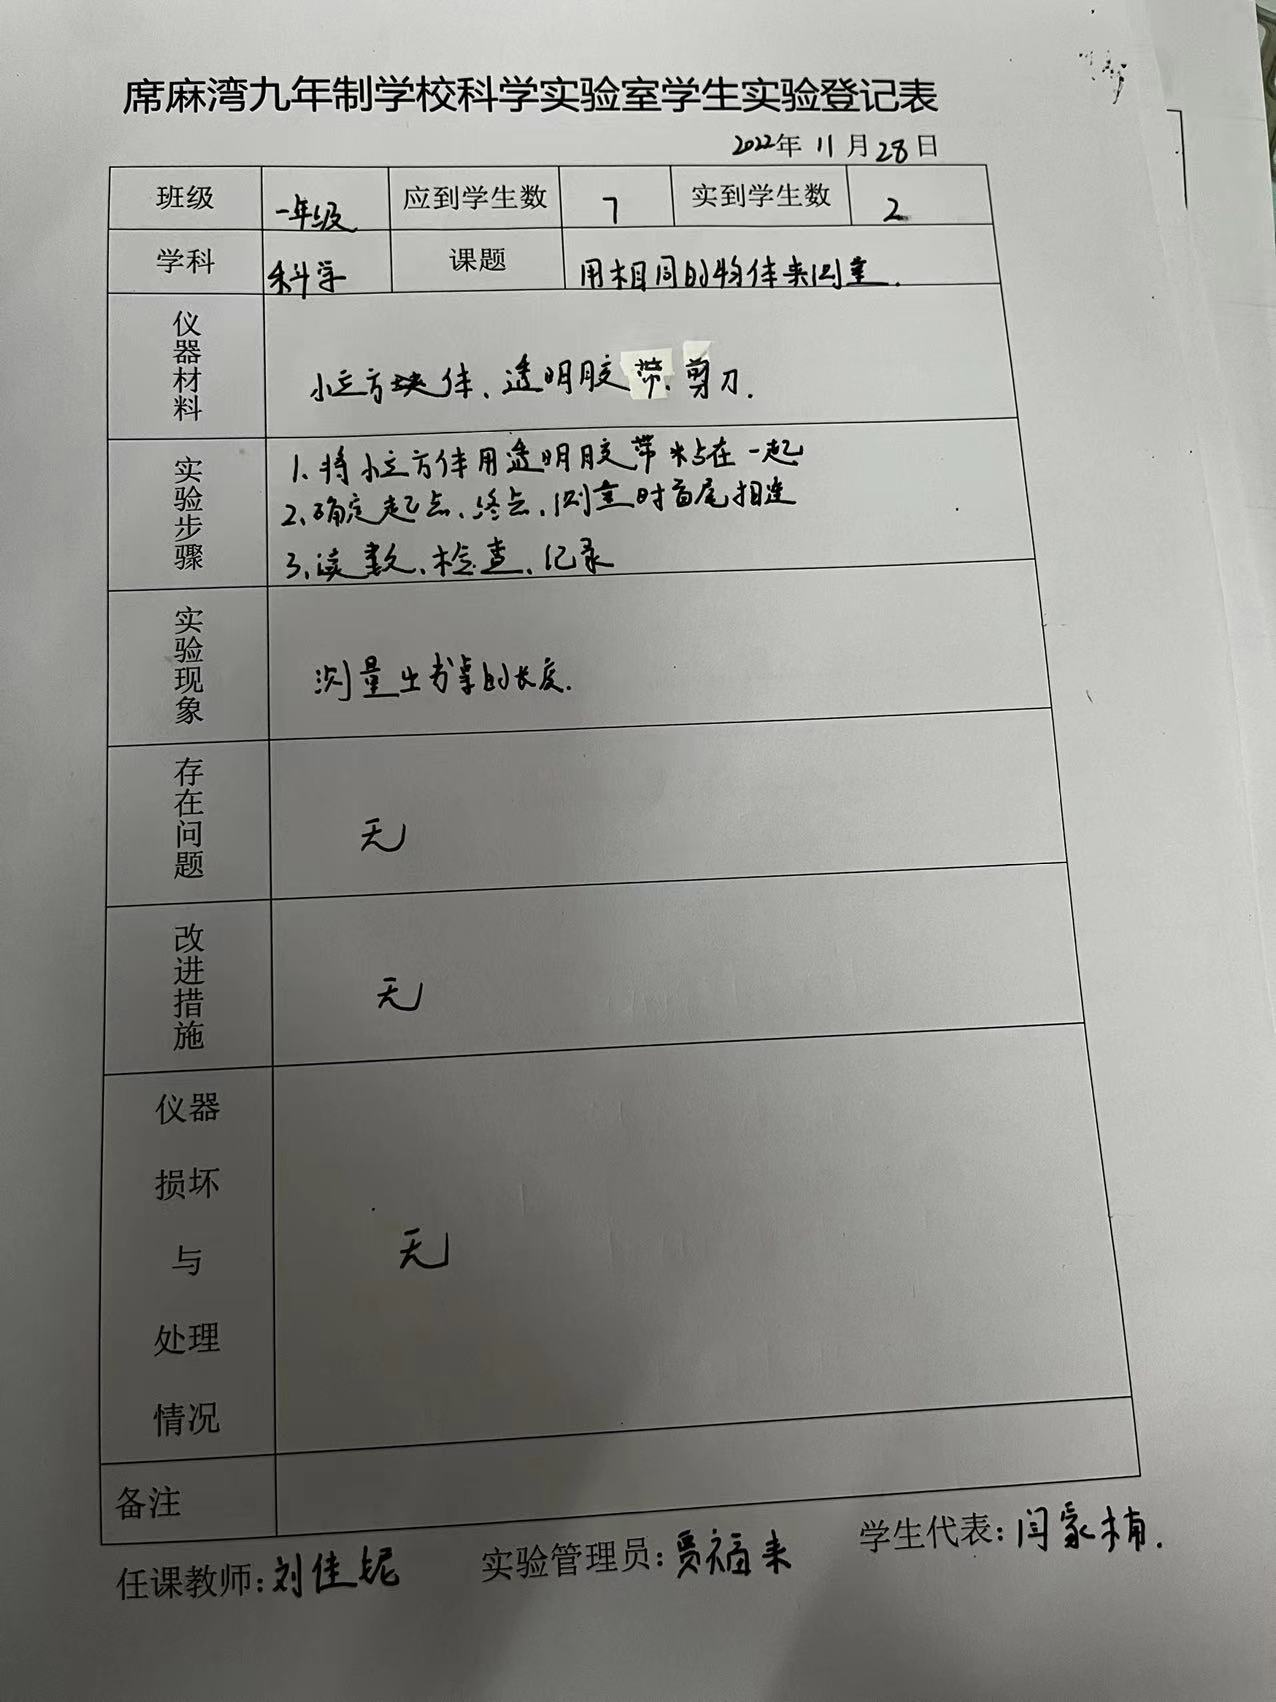 席麻湾九年制学校科学实验室学生实验登记表
2022年 11月28日
班级 一年级 应到学生数 7 实到学生数 2
学科 科学 课题 用相同的物体来测量.
仪器材料 小立方块体、透明胶带、剪刀.
实验步骤 1、将小立方体用透明胶带粘在一起
2、确定起点、终点、测量时首尾相连
3、读数、检查、记录
实验现象 测量出书桌的长度.
存在问题 无
改进措施 无
仪器
损坏
与 无
处理
情况
备注
任课教师:刘佳妮 实验管理员:贾福来 学生代表:闫家楠.